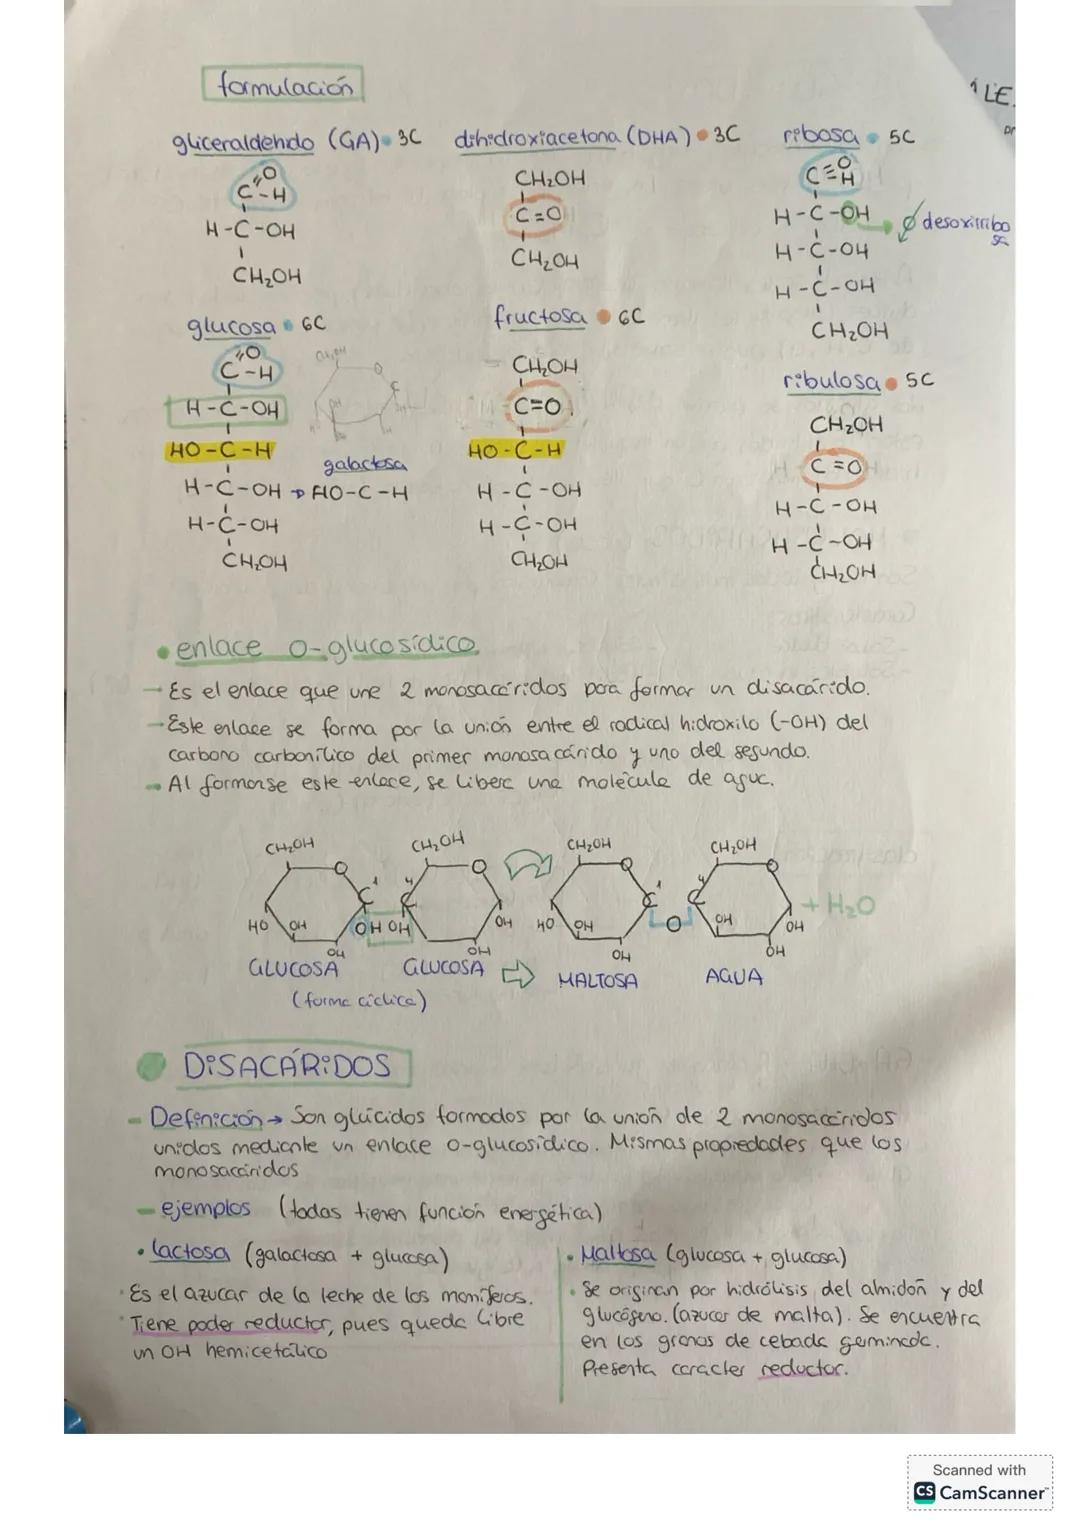 formulación
gliceraldehído (GA) 3C
C=O
C-H
H-C-OH
CH₂OH
dihidroxiacetona (DHA) 3C
CH₂OH
C=O
CH₂OH
ribosa 5C
C=O
H
H-C-OH
desoxirribo
sa
H-C-OH
H-C-OH
CH₂OH
1 LE.
glucosa 6C
C=O
C-H
H-C-OH
HO-C-H
H-C-OH → HO-C-H
galactosa
H-C-OH
CH₂OH
fructosa 6C
CH₂OH
C=O
HO-C-H
H-C-OH
H-C-OH
CH₂OH
ribulosa 5C
CH₂OH
C=O
H-C-OH
H-C-OH
CH₂OH
• enlace o-glucosídico.
→ Es el enlace que une 2 monosacáridos para formar un disacárido.
→ Este enlace se forma por la unión entre el radical hidroxilo (-OH) del
carbono carbonílico del primer monosacárido y uno del segundo.
→ Al formarse este enlace, se libera una molécula de agua.
CH₂OH CH₂OH CH₂OH CH₂OH
O O O O
C 1 4 C C 1 4 C
+ H₂O
HO OH OH OH OH HO OH O OH OH
OH OH OH OH
GLUCOSA GLUCOSA ⇨ MALTOSA AGUA
(forma cíclica)
DISACÁRIDOS
- Definición → Son glúcidos formados por la unión de 2 monosacáridos
unidos mediante un enlace o-glucosídico. Mismas propiedades que los
monosacáridos
- ejemplos (todas tienen función energética)
• lactosa (galactosa + glucosa)
· Es el azucar de la leche de los mamíferos.
· Tiene poder reductor, pues queda libre
un OH hemicetálico
• Maltosa (glucosa + glucosa)
• Se originan por hidrólisis del almidón y del
glucógeno. (azucar de malta). Se encuentra
en los granos de cebada germinada.
Presenta caracter reductor.
Scanned with
CS CamScanner